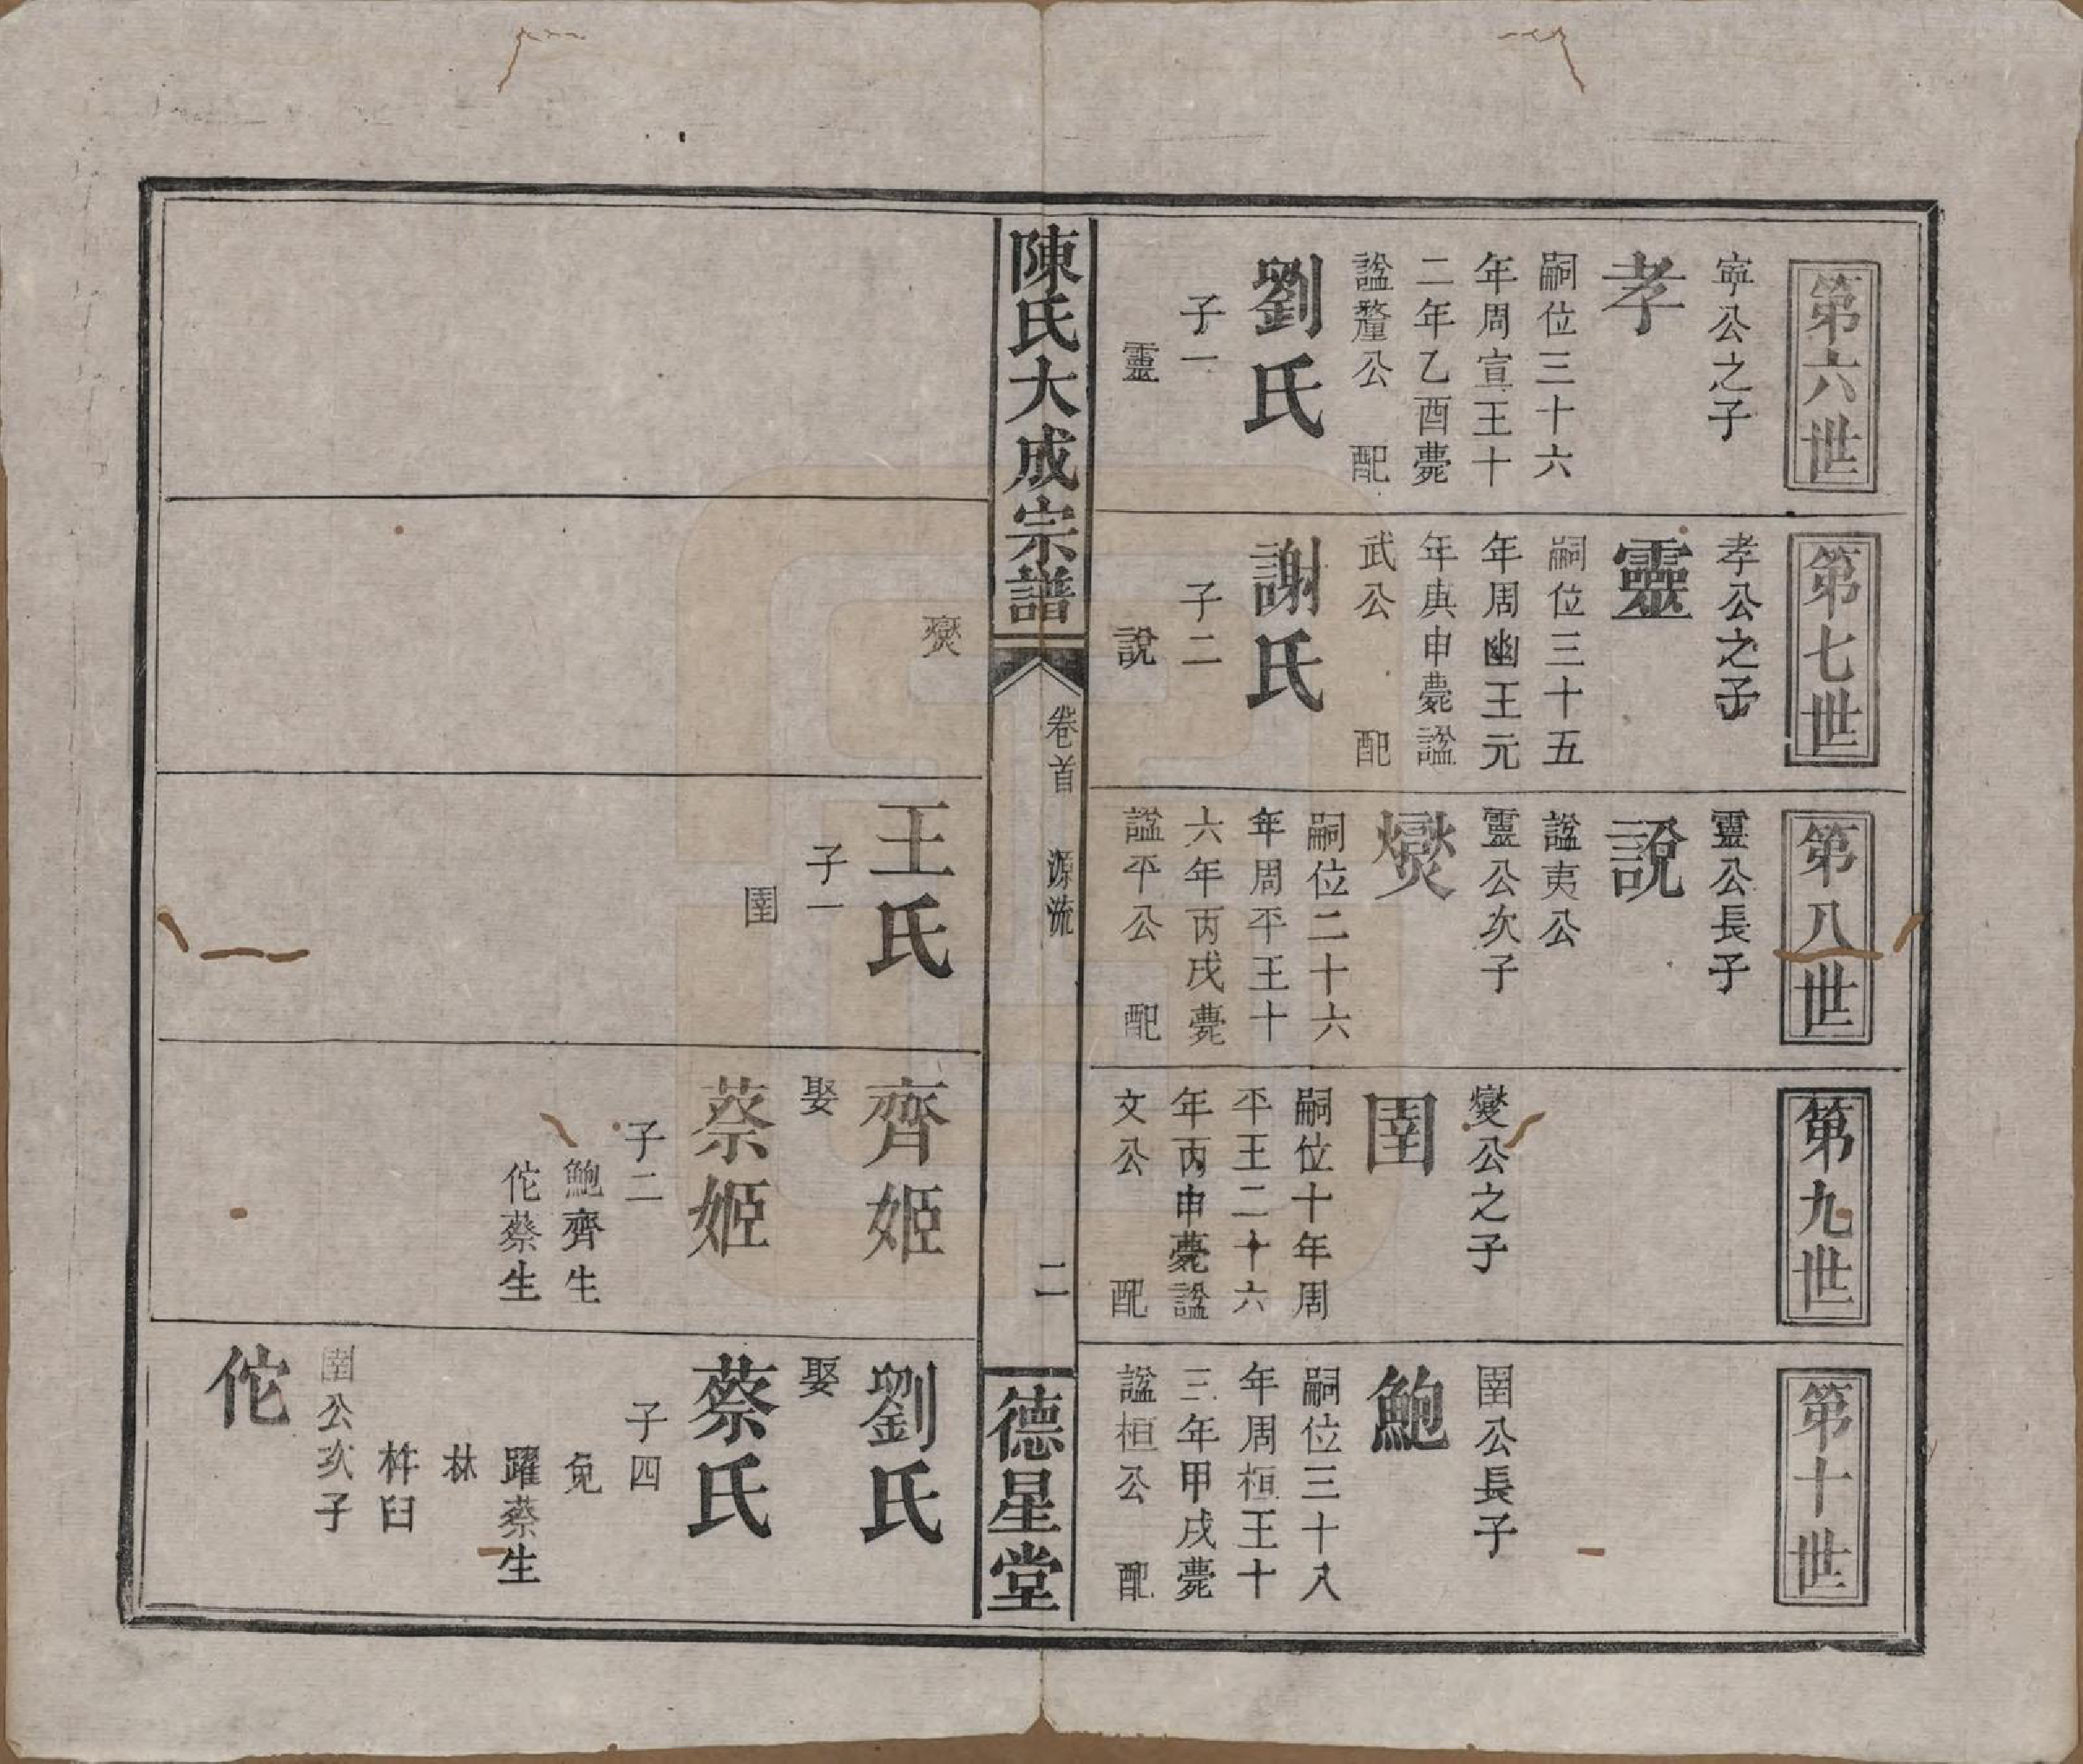 第六世
寧公之子
孝
嗣位三十六
年周宣王十
二年乙酉薨
諡釐公 配
劉氏
子一
靈
第七世
孝公之子
靈
嗣位三十五
年周幽王元
年庚申薨諡
武公 配
謝氏
子二
說
燮
第八世
靈公長子
說
諡夷公
靈公次子
燮
嗣位二十六
年周平王十
六年丙戌薨
諡平公 配
王氏
子一
圉
第九世
燮公之子
圉
嗣位十年周
平王二十六
年丙申薨諡
文公 配
齊姬
娶
蔡姬
子二
鮑齊生
佗蔡生
第十世
圉公長子
鮑
嗣位三十八
年周桓王十
三年甲戌薨
諡桓公 配
劉氏
娶
蔡氏
子四
免
躍蔡生
林
杵臼
圉公次子
佗
陳氏大成宗譜
卷首 源流
二
德星堂